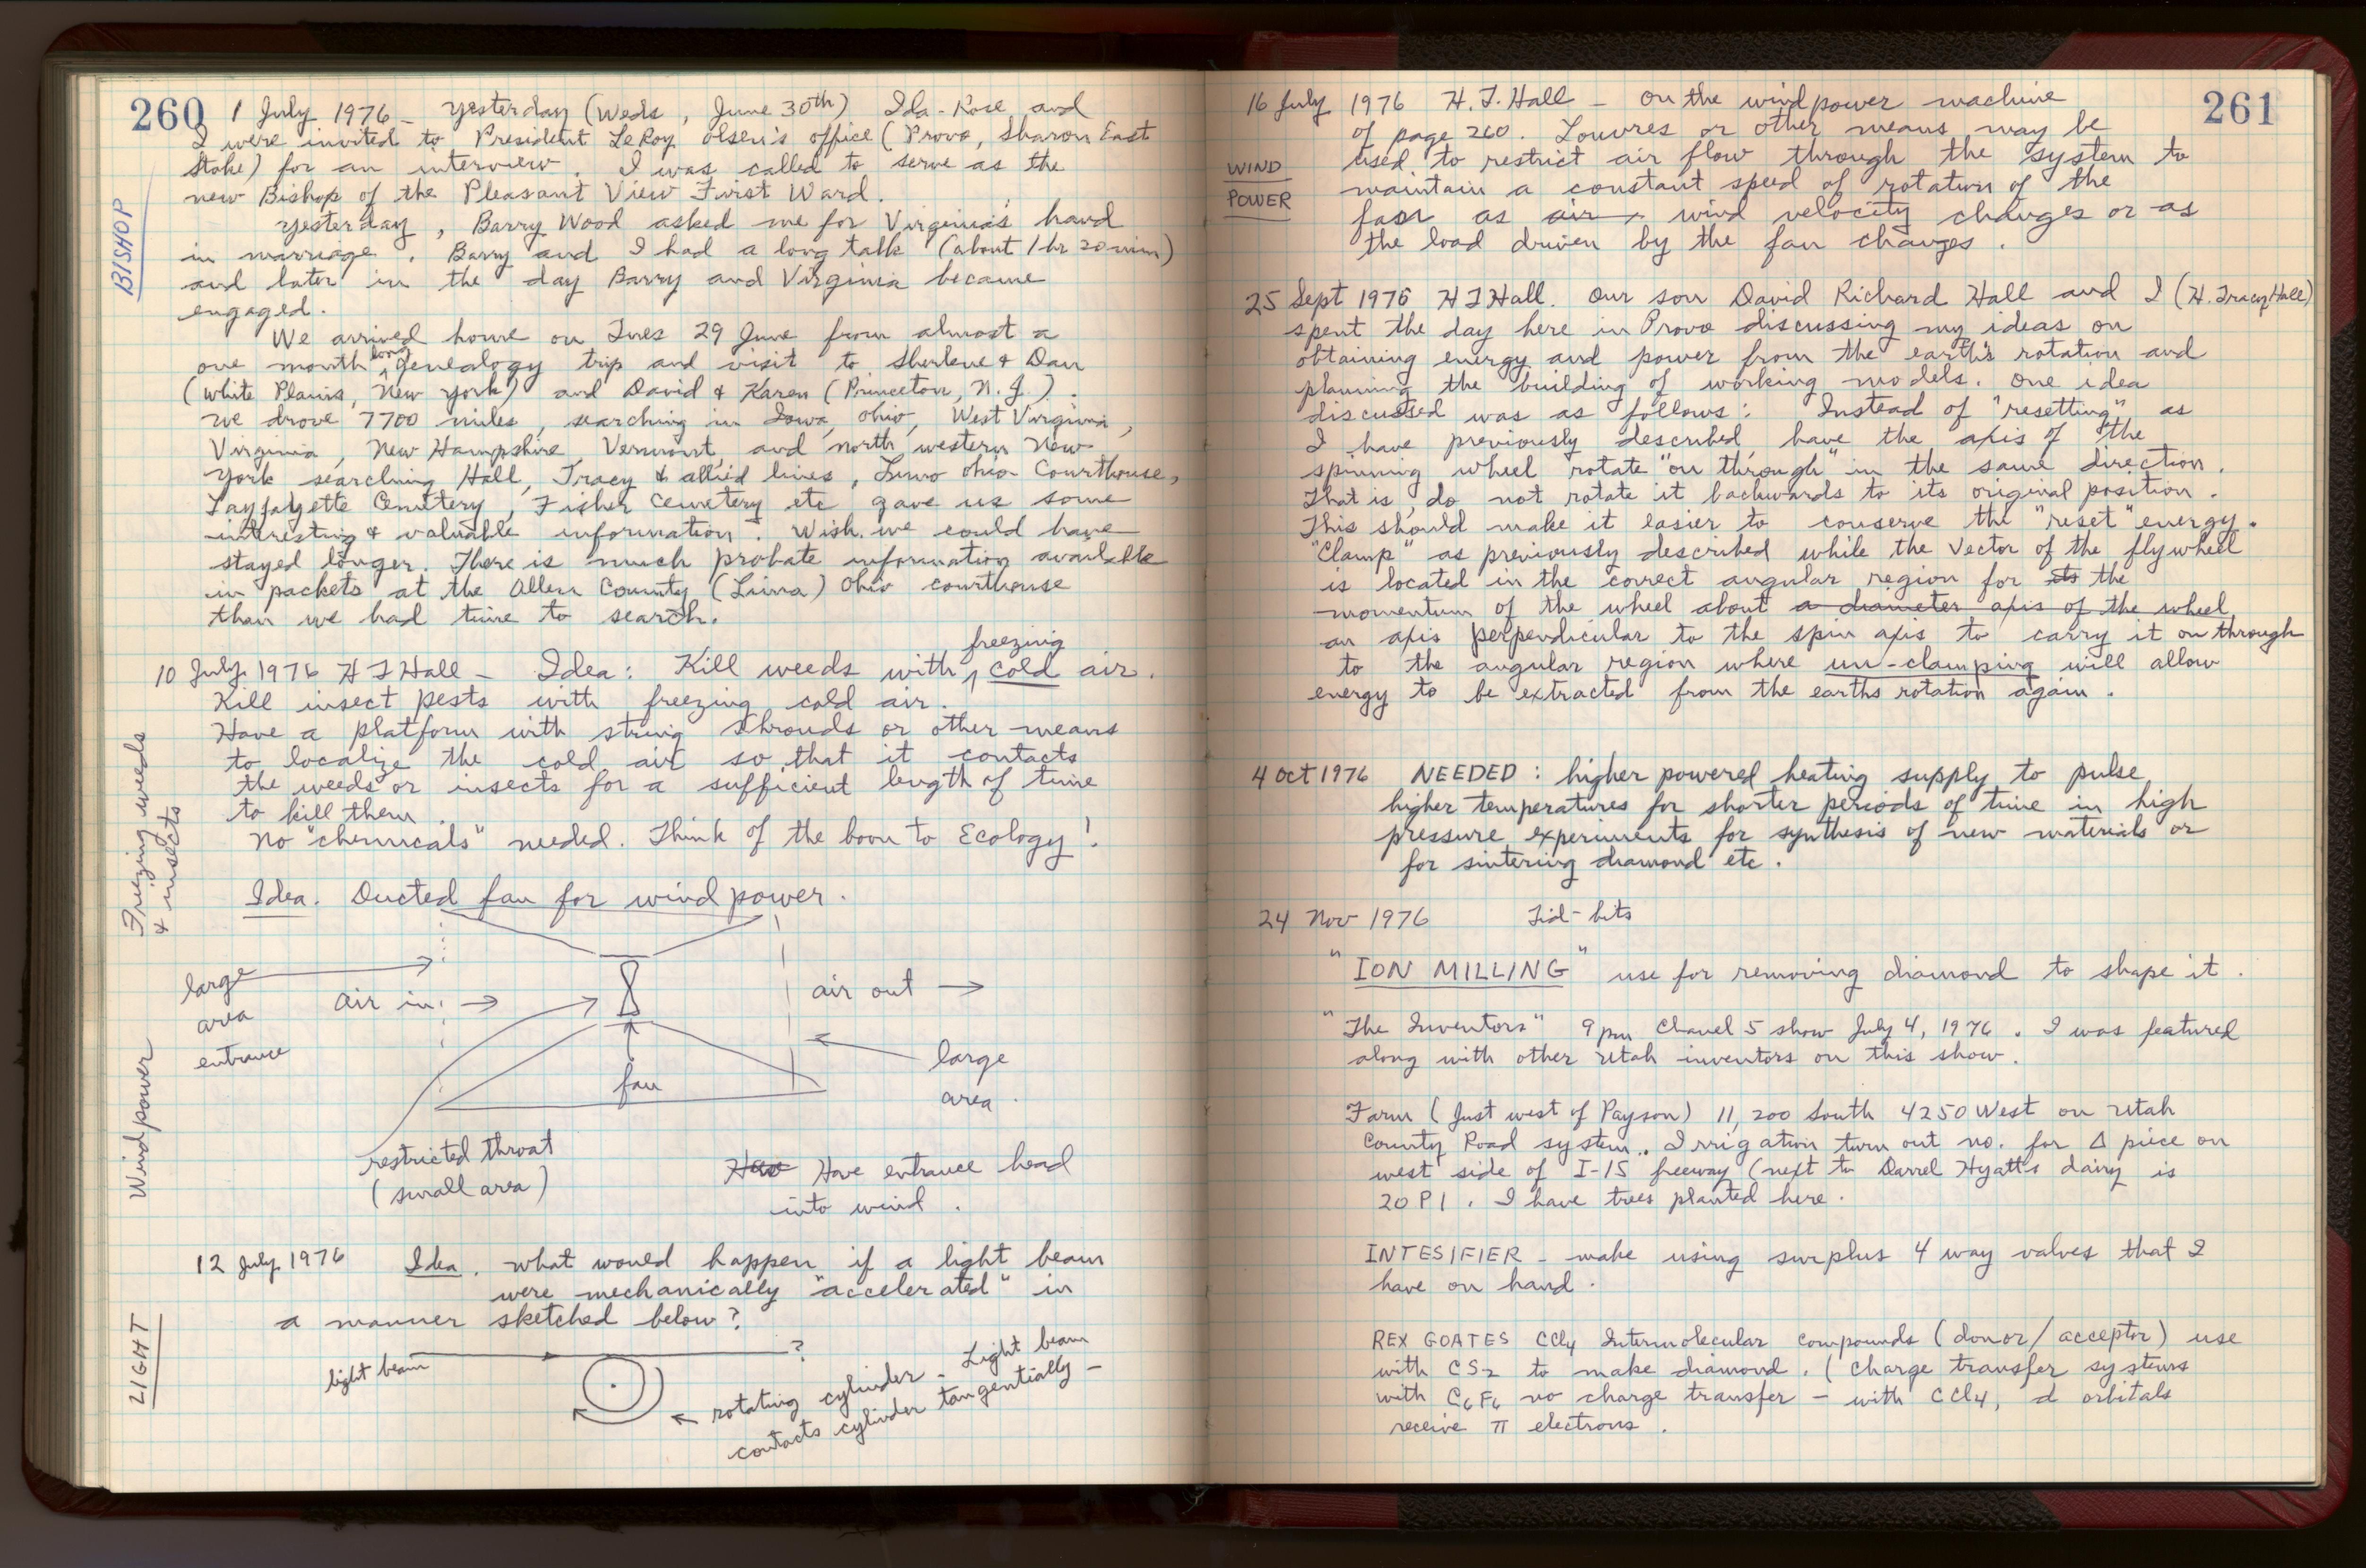 260 1 July 1976 - Yesterday (Weds, June 30th) Ida-Rose and
I were invited to President LeRoy Olsen's office (Provo, Sharon East
Stake) for an interview. I was called to serve as the
new Bishop of the Pleasant View First Ward.
BISHOP
Yesterday, Barry Wood asked me for Virginia's hand
in marriage. Barry and I had a long talk (about 1 hr 20 min)
and later in the day Barry and Virginia became
engaged.
We arrived home on Tues 29 June from almost a
one month long genealogy trip and visit to Sherlene & Dan
(White Plains, New York) and David & Karen (Princeton, N.J.).
We drove 7700 miles, searching in Iowa, Ohio, West Virginia,
Virginia, New Hampshire, Vermont, and north western New
York searching Hall, Tracy & allied lines, Lima Ohio Courthouse,
Layfayette Cemetery, Fisher Cemetery etc gave us some
interesting & valuable information. Wish we could have
stayed longer. There is much probate information available
in packets at the Allen County (Lima) Ohio courthouse
than we had time to search.
10 July 1976 H T Hall - Idea: Kill weeds with freezing cold air.
Kill insect pests with freezing cold air.
Have a platform with string shrouds or other means
to localize the cold air so that it contacts
the weeds or insects for a sufficient length of time
to kill them.
No "chemicals" needed. Think of the boon to Ecology!
Freezing weeds
& insects
Idea. Ducted fan for wind power.
large
area
entrance
air in →
air out →
fan
large
area.
Windpower
restricted throat
(small area)
Have Have entrance head
into wind.
12 July 1976 Idea. What would happen if a light beam
were mechanically "accelerated" in
a manner sketched below?
LIGHT
light beam
?
← rotating cylinder - Light beam
contacts cylinder tangentially -
261
16 July 1976 H.T. Hall - On the wind power machine
of page 260. Louvres or other means may be
WIND
POWER
used to restrict air flow through the system to
maintain a constant speed of rotation of the
fan as air wind velocity changes or as
the load driven by the fan changes.
25 Sept 1976 H T Hall. Our son David Richard Hall and I (H. Tracy Hall)
spent the day here in Provo discussing my ideas on
obtaining energy and power from the earth's rotation and
planning the building of working models. One idea
discussed was as follows: Instead of "resetting" as
I have previously described, have the axis of the
spinning wheel rotate "on through" in the same direction.
That is, do not rotate it backwards to its original position.
This should make it easier to conserve the "reset" energy.
"Clamp" as previously described while the vector of the flywheel
is located in the correct angular region for its the
momentum of the wheel about a diameter axis of the wheel
an axis perpendicular to the spin axis to carry it on through
to the angular region where un-clamping will allow
energy to be extracted from the earths rotation again.
4 Oct 1976 NEEDED: higher powered heating supply to pulse
higher temperatures for shorter periods of time in high
pressure experiments for synthesis of new materials or
for sintering diamond etc.
24 Nov 1976 Tid-bits
"ION MILLING" use for removing diamond to shape it.
"The Inventors" 9 pm Chanel 5 show July 4, 1976. I was featured
along with other Utah inventors on this show.
Farm (Just west of Payson) 11,200 South 4250 West on Utah
County Road system. Irrigation turn out no. for Δ piece on
west side of I-15 freeway (next to Darrel Hyatt's dairy is
20 P1. I have trees planted here.
INTESIFIER - make using surplus 4 way valves that I
have on hand.
REX GOATES CCl4 Intermolecular compounds (donor/acceptor) use
with CS2 to make diamond. (Charge transfer systems
with C6F6 no charge transfer - with CCl4, d orbitals
receive π electrons.